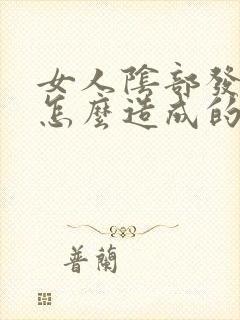 女人陰部發
怎麼造成的
普蘭